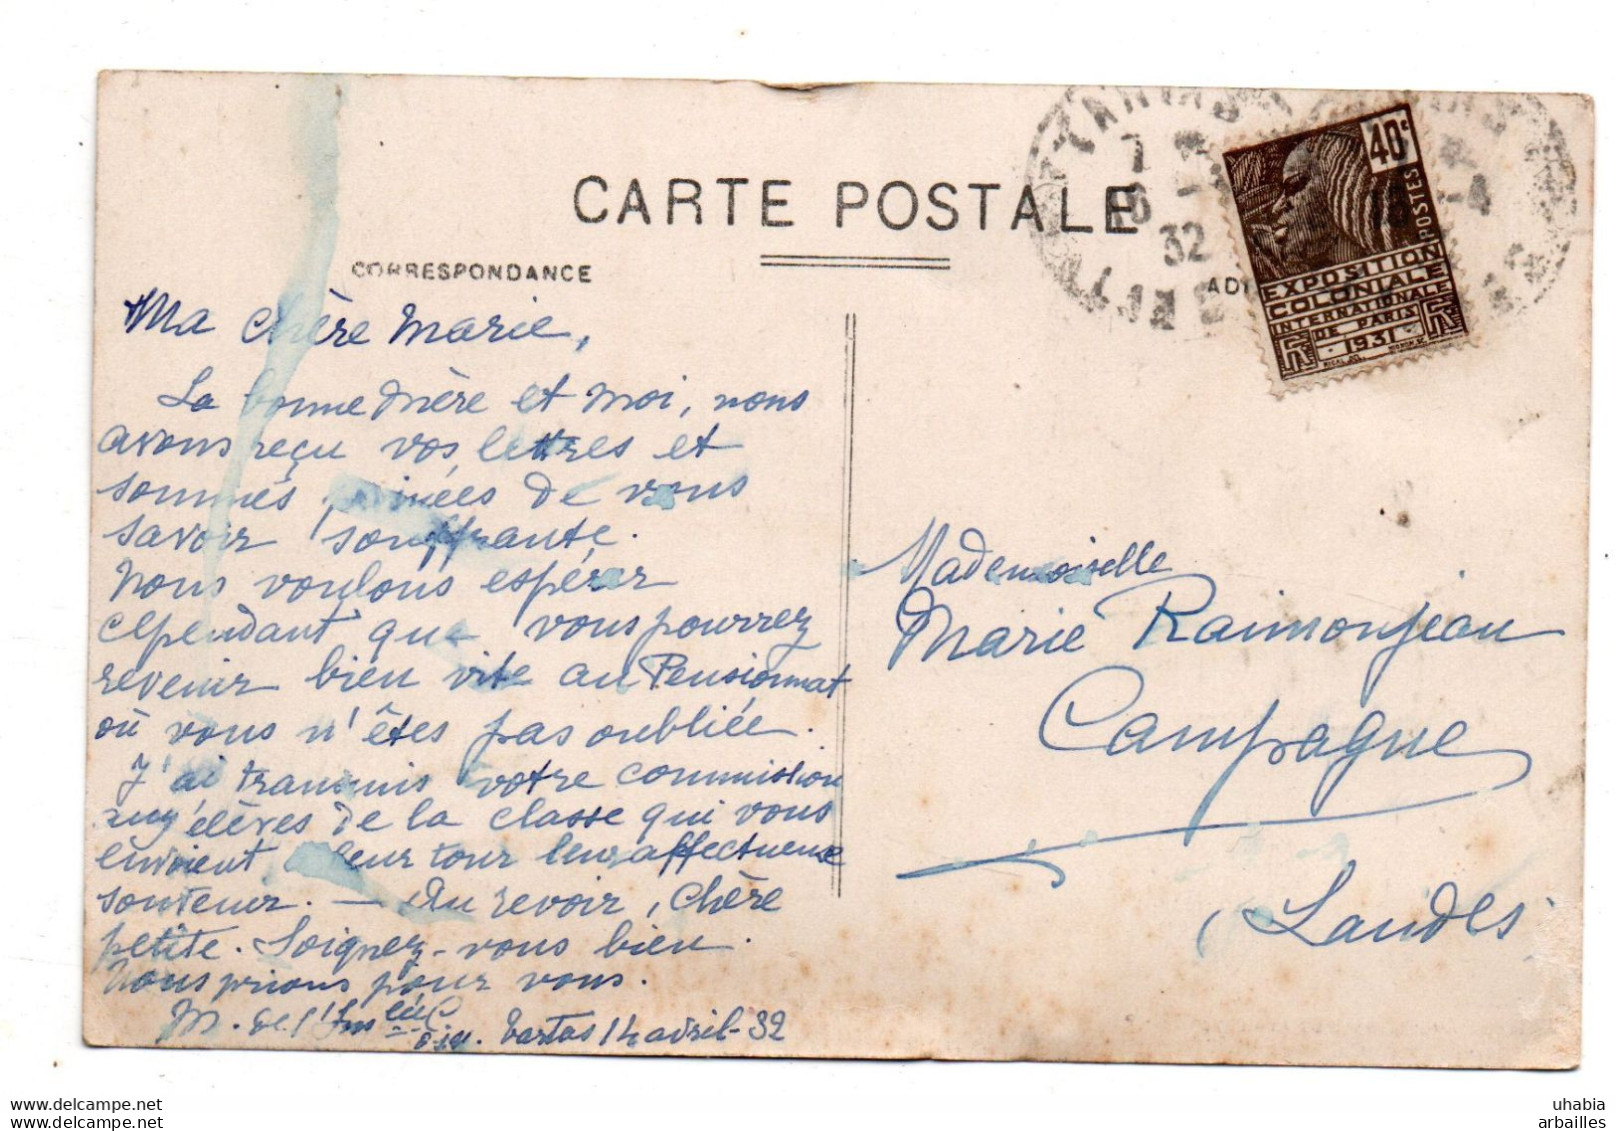 CARTE POSTALE
CORRESPONDANCE
Ma chère Marie,
La bonne Mère et moi, nous
avons reçu vos lettres et
sommes peinées de vous
savoir souffrante.
Nous voulons espérer
cependant que vous pourrez
revenir bien vite au Pensionnat
où vous n'êtes pas oubliée.
J'ai transmis votre commission
aux élèves de la classe qui vous
envoient leur tour leur affectueux
souvenir. — Au revoir, chère
petite. Soignez-vous bien.
Nous prions pour vous.
M. de l' Tartas 14 avril-32
32
40c
POSTES
EXPOSITION
COLONIALE
INTERNATIONALE
DE PARIS
1931
Mademoiselle
Marie Raimonjean
Campagne
Landes
www.delcampe.net
www.delcampe.net
uhabia
arbailles